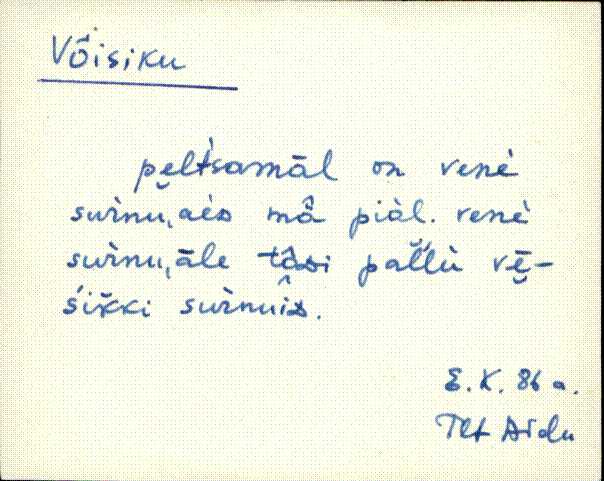 Võisiku
pe̮lt́samāl on venè
suŕnu,aèɒ mâ piàl. venè
suŕnu,āle tâɒi pal̆lù vē̮-
śik̆ki suŕnuiɒ.
E.K. 86 a.
Tlt Aidu